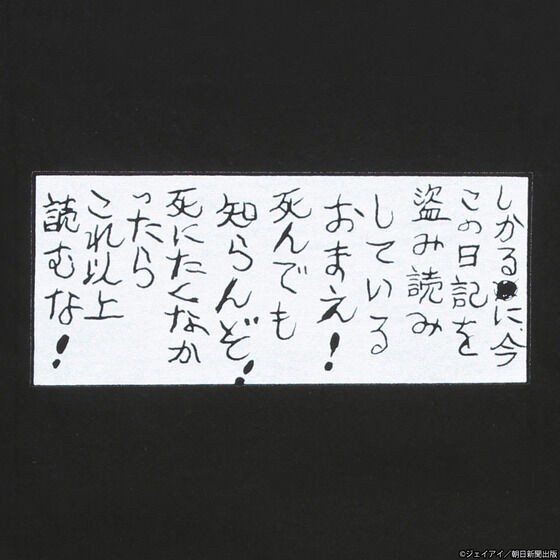 しかるに、今
この日記を
盗み読み
している
おまえ!
死んでも
知らんぞ!
死にたくなか
ったら
これ以上
読むな!
©ジェイアイ/朝日新聞出版